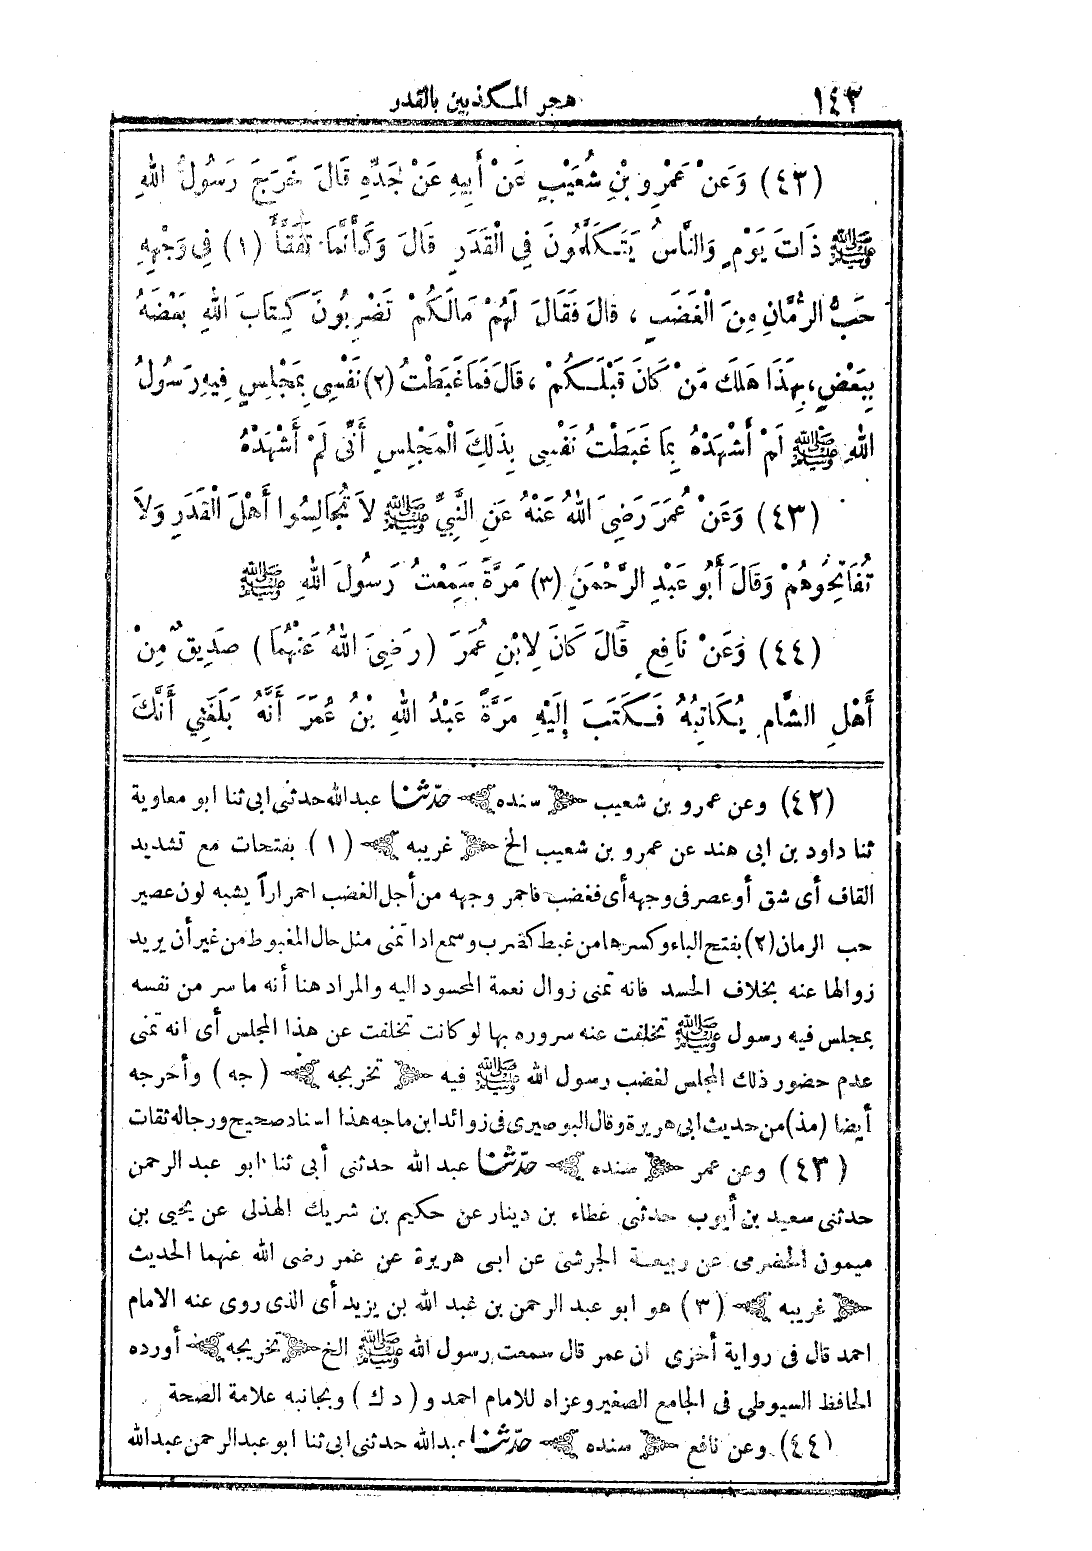 ١٤٣ هجر المكذبين بالقدر
(٤٣) وَعَنْ عَمْرِو بْنِ شُعَيْبٍ عَنْ أَبِيهِ عَنْ جَدِّهِ قَالَ خَرَجَ رَسُولُ اللهِ
ﷺ ذَاتَ يَوْمٍ وَالنَّاسُ يَتَكَلَّمُونَ فِي الْقَدَرِ قَالَ وَكَأَنَّمَا تَفَقَّأَ (١) فِي وَجْهِهِ
حَبُّ الرُّمَّانِ مِنَ الْغَضَبِ ، قَالَ فَقَالَ لَهُمْ مَالَكُمْ تَضْرِبُونَ كِتَابَ اللهِ بَعْضَهُ
بِبَعْضٍ، بِهَذَا هَلَكَ مَنْ كَانَ قَبْلَكُمْ ، قَالَ فَمَا غَبَطْتُ (٢) نَفْسِي بِمَجْلِسٍ فِيهِ رَسُولُ
اللهِ ﷺ لَمْ أَشْهَدْهُ بِمَا غَبَطْتُ نَفْسِي بِذَلِكَ الْمَجْلِسِ أَنِّي لَمْ أَشْهَدْهُ
(٤٣) وَعَنْ عُمَرَ رَضِيَ اللهُ عَنْهُ عَنِ النَّبِيِّ ﷺ لاَ تُجَالِسُوا أَهْلَ الْقَدَرِ وَلاَ
تُفَاتِحُوهُمْ وَقَالَ أَبُو عَبْدِ الرَّحْمَنِ (٣) مَرَّةً سَمِعْتُ رَسُولَ اللهِ ﷺ
(٤٤) وَعَنْ نَافِعٍ قَالَ كَانَ لِابْنِ عُمَرَ (رَضِيَ اللهُ عَنْهُمَا) صَدِيقٌ مِنْ
أَهْلِ الشَّامِ يُكَاتِبُهُ فَكَتَبَ إِلَيْهِ مَرَّةً عَبْدُ اللهِ بْنُ عُمَرَ أَنَّهُ بَلَغَنِي أَنَّكَ
(٤٢) وعن عمرو بن شعيب سنده حدثنا عبد الله حدثنى ابى ثنا ابو معاوية
ثنا داود بن ابى هند عن عمرو بن شعيب الخ غريبه (١) بفتحات مع تشديد
القاف أى شق أو عصر فى وجهه أى فغضب فاحمر وجهه من أجل الغضب احمراراً يشبه لون عصير
حب الرمان (٢) بفتح الباء وكسرها من غبط كضرب وسمع اذا تمنى مثل حال المغبوط من غير أن يريد
زوالها عنه بخلاف الحسد فانه تمنى زوال نعمة المحسود اليه والمراد هنا أنه ما سر من نفسه
بمجلس فيه رسول ﷺ تخلفت عنه سروره بها لو كانت تخلفت عن هذا المجلس أى انه تمنى
عدم حضور ذلك المجلس لغضب رسول الله ﷺ فيه تخريجه (جه) وأخرجه
أيضا (مذ) من حديث ابى هريرة وقال البوصيرى فى زوائد ابن ماجه هذا اسناد صحيح ورجاله ثقات
(٤٣) وعن عمر سنده حدثنا عبد الله حدثنى أبى ثنا ابو عبد الرحمن
حدثنى سعيد بن أيوب حدثنى عطاء بن دينار عن حكيم بن شريك الهذلى عن يحيى بن
ميمون الحضرمى عن ربيعة الجرشى عن ابى هريرة عن عمر رضى الله عنهما الحديث
غريبه (٣) هو ابو عبد الرحمن بن عبد الله بن يزيد أى الذى روى عنه الامام
احمد قال فى رواية أخرى ان عمر قال سمعت رسول الله ﷺ الخ تخريجه أورده
الحافظ السيوطي فى الجامع الصغير وعزاه للامام احمد و (د ك) وبجانبه علامة الصحة
(٤٤) وعن نافع سنده حدثنا عبد الله حدثنى ابى ثنا ابو عبد الرحمن عبد الله